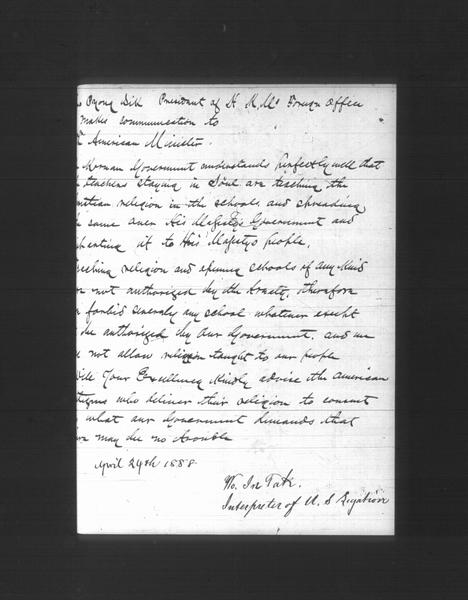 Pyong Sik President of H. K. M's Foreign Office
makes communication to
American Minister.
Korean Government understands perfectly well that
teachers staying in Söul are teaching the
religion in the schools, and spreading
same over His Majesty's Government and
it to His Majesty's people.
religion and opening schools of any kind
not authorized by the treaty, therefore
forbid severely any school whatever except
be authorized by our Government, and we
not allow religion taught to our people
Your Excellency kindly advise the American
who deliver their religion to consent
what our Government demands that
may be no trouble
April 29th 1888
Ye. In Tak.
Interpreter of U. S Legation